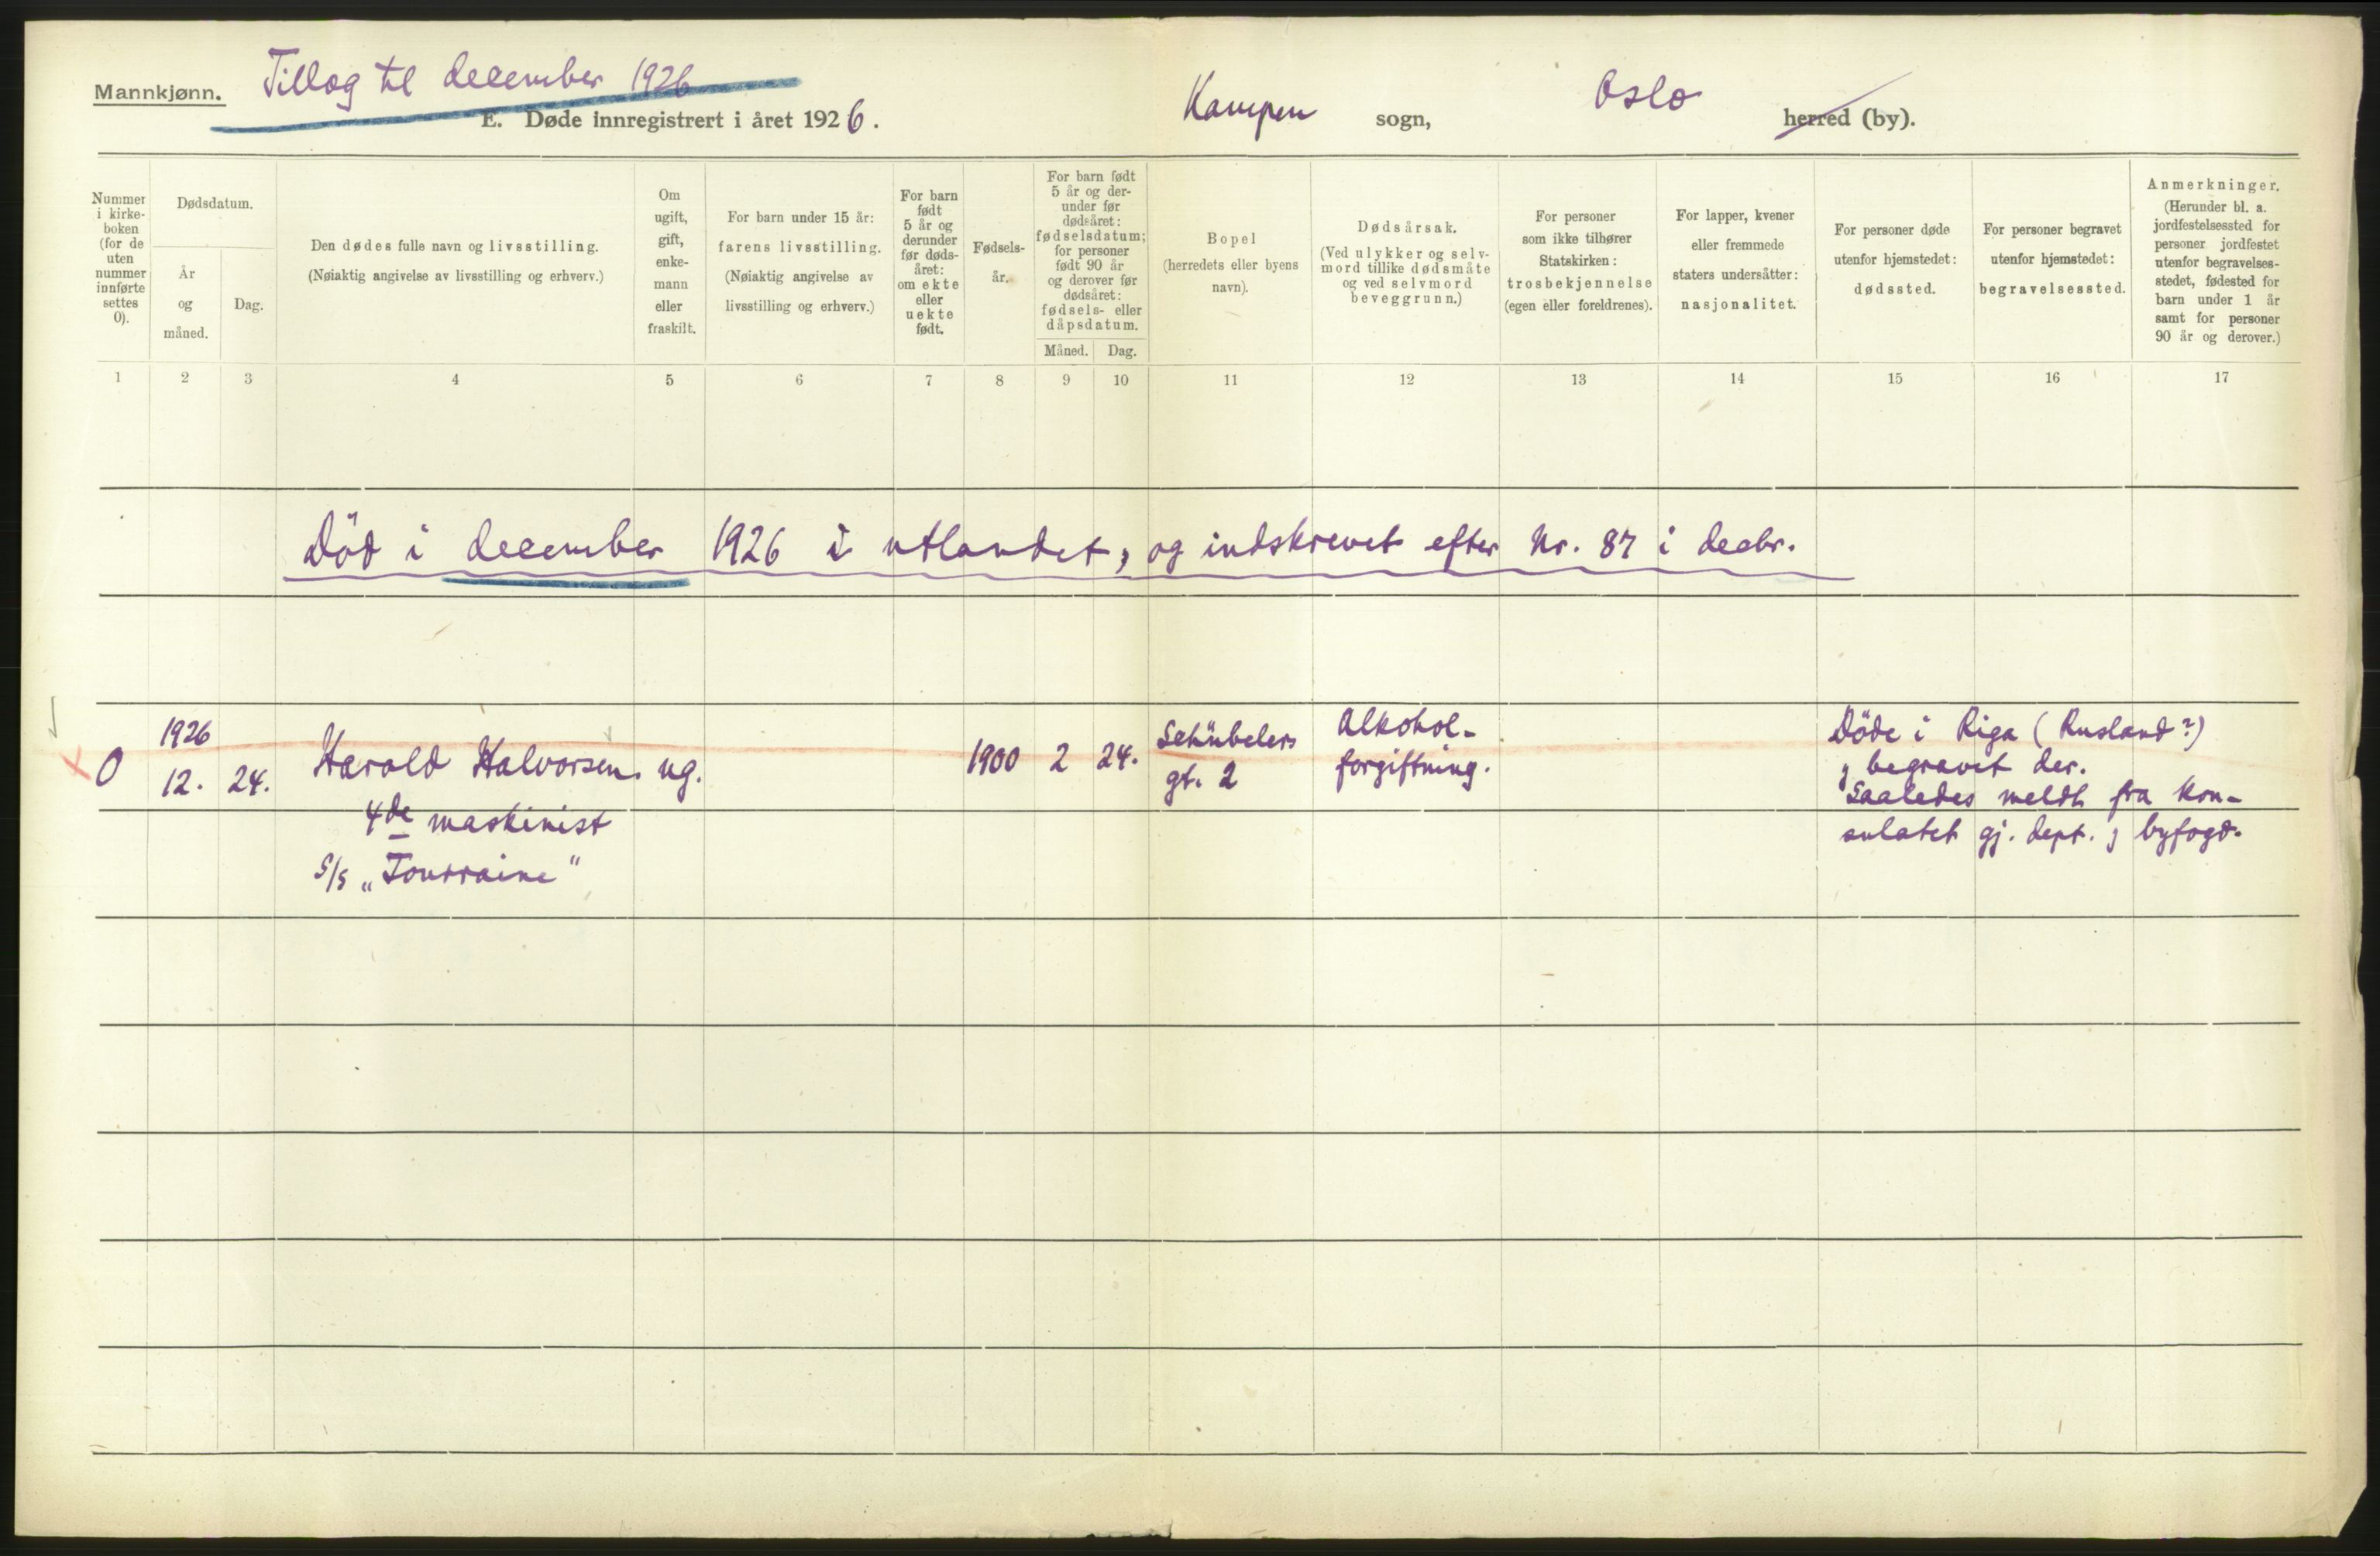 Mannkjønn.
Tillæg til december 1926
E. Døde innregistrert i året 1926.
Kampen sogn,
Oslo herred (by).
Nummer
i kirke-
boken
(for de
uten
nummer
innførte
settes
0).
Dødsdatum.
År
og
måned.
Dag.
Den dødes fulle navn og livsstilling.
(Nøiaktig angivelse av livsstilling og erhverv.)
Om
ugift,
gift,
enke-
mann
eller
fraskilt.
For barn under 15 år:
farens livsstilling.
(Nøiaktig angivelse av
livsstilling og erhverv.)
For barn
født
5 år og
derunder
før døds-
året:
om ekte
eller
uekte
født.
Fødsels-
år.
For barn født
5 år og der-
under før
dødsåret:
fødselsdatum;
for personer
født 90 år
og derover før
dødsåret:
fødsels- eller
dåpsdatum.
Måned. Dag.
Bopel
(herredets eller byens
navn).
Dødsårsak.
(Ved ulykker og selv-
mord tillike dødsmåte
og ved selvmord
beveggrunn.)
For personer
som ikke tilhører
Statskirken:
trosbekjennelse
(egen eller foreldrenes).
For lapper, kvener
eller fremmede
staters undersåtter:
nasjonalitet.
For personer døde
utenfor hjemstedet:
dødssted.
For personer begravet
utenfor hjemstedet:
begravelsessted.
Anmerkninger.
(Herunder bl. a.
jordfestelsessted for
personer jordfestet
utenfor begravelses-
stedet, fødested for
barn under 1 år
samt for personer
90 år og derover.)
1 2 3 4 5 6 7 8 9 10 11 12 13 14 15 16 17
Död i december 1926 i utlandet, og indskrevet efter Nr. 87 i decbr.
0
1926
12. 24.
Harold Halvorsen. ug.
4de maskinist
S/S „Tourraine"
1900 2 24.
Schübelers
gt. 2
Alkohol-
forgiftning.
Döde i Riga (Rusland?)
begravet der.
Saaledes meldt fra kon-
sulatet gj. dept. byfogd.